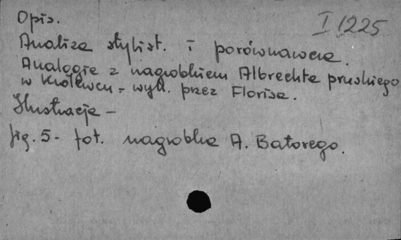 Opis.
I 1225
Analiza stylist. i porównawcza.
Analogie z nagrobkiem Albrechta pruskiego
w Królewcu - wyk. przez Florisa.
Ilustracje -
fig. 5 - fot. nagrobka A. Batorego.